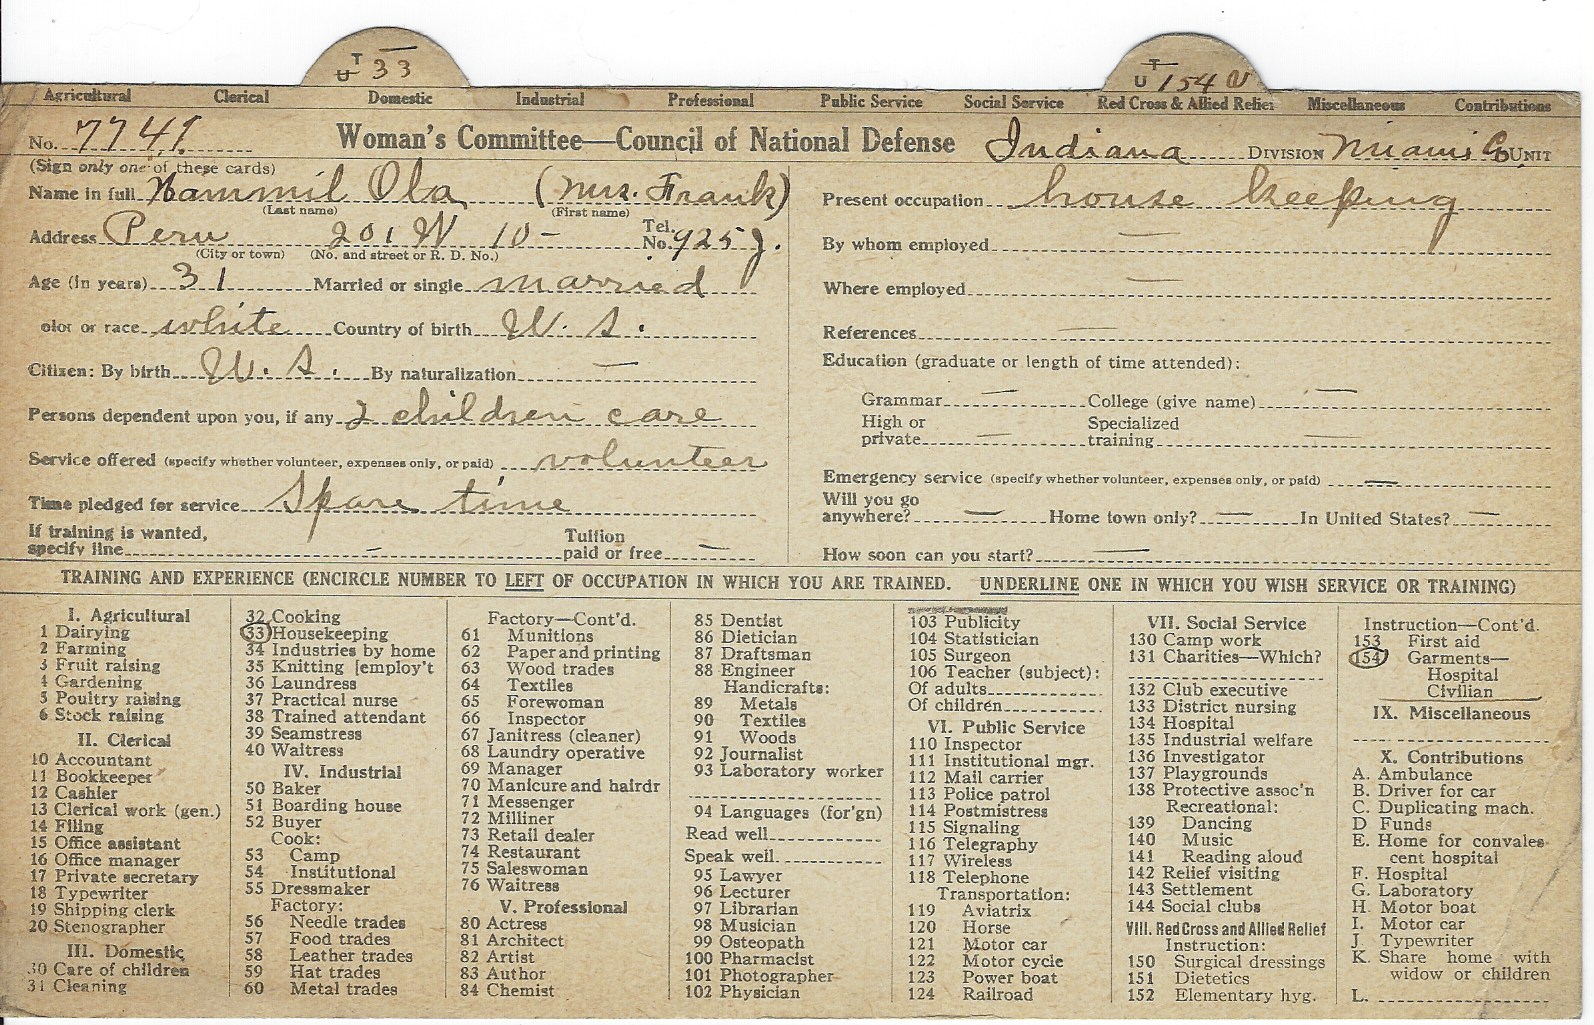 T
U 33
T
U 154 V
Agricultural Clerical Domestic Industrial Professional Public Service Social Service Red Cross & Allied Relief Miscellaneous Contributions
No. 7741 Woman's Committee—Council of National Defense Indiana DIVISION Miami Co UNIT
(Sign only one of these cards)
Name in full Hammil Ola (Mrs. Frank)
(Last name) (First name)
Address Peru 201 W 10 – Tel. No. 925 J.
(City or town) (No. and street or R. D. No.)
Age (in years) 31 Married or single married
olor or race white Country of birth U. S.
Citizen: By birth U. S. By naturalization —
Persons dependent upon you, if any 2 children care
Service offered (specify whether volunteer, expenses only, or paid) volunteer
Time pledged for service Spare time
If training is wanted,
specify line – Tuition paid or free —
Present occupation house keeping
By whom employed —
Where employed —
References —
Education (graduate or length of time attended):
Grammar — College (give name) —
High or private — Specialized training —
Emergency service (specify whether volunteer, expenses only, or paid) —
Will you go
anywhere? — Home town only? — In United States? —
How soon can you start? —
TRAINING AND EXPERIENCE (ENCIRCLE NUMBER TO LEFT OF OCCUPATION IN WHICH YOU ARE TRAINED. UNDERLINE ONE IN WHICH YOU WISH SERVICE OR TRAINING)
I. Agricultural
1 Dairying
2 Farming
3 Fruit raising
4 Gardening
5 Poultry raising
6 Stock raising
II. Clerical
10 Accountant
11 Bookkeeper
12 Cashier
13 Clerical work (gen.)
14 Filing
15 Office assistant
16 Office manager
17 Private secretary
18 Typewriter
19 Shipping clerk
20 Stenographer
III. Domestic
30 Care of children
31 Cleaning
32 Cooking
33 Housekeeping
34 Industries by home
35 Knitting [employ't
36 Laundress
37 Practical nurse
38 Trained attendant
39 Seamstress
40 Waitress
IV. Industrial
50 Baker
51 Boarding house
52 Buyer
Cook:
53 Camp
54 Institutional
55 Dressmaker
Factory:
56 Needle trades
57 Food trades
58 Leather trades
59 Hat trades
60 Metal trades
Factory—Cont'd.
61 Munitions
62 Paper and printing
63 Wood trades
64 Textiles
65 Forewoman
66 Inspector
67 Janitress (cleaner)
68 Laundry operative
69 Manager
70 Manicure and hairdr
71 Messenger
72 Milliner
73 Retail dealer
74 Restaurant
75 Saleswoman
76 Waitress
V. Professional
80 Actress
81 Architect
82 Artist
83 Author
84 Chemist
85 Dentist
86 Dietician
87 Draftsman
88 Engineer
Handicrafts:
89 Metals
90 Textiles
91 Woods
92 Journalist
93 Laboratory worker
94 Languages (for'gn)
Read well
Speak well
95 Lawyer
96 Lecturer
97 Librarian
98 Musician
99 Osteopath
100 Pharmacist
101 Photographer
102 Physician
103 Publicity
104 Statistician
105 Surgeon
106 Teacher (subject):
Of adults
Of children
VI. Public Service
110 Inspector
111 Institutional mgr.
112 Mail carrier
113 Police patrol
114 Postmistress
115 Signaling
116 Telegraphy
117 Wireless
118 Telephone
Transportation:
119 Aviatrix
120 Horse
121 Motor car
122 Motor cycle
123 Power boat
124 Railroad
VII. Social Service
130 Camp work
131 Charities—Which?
132 Club executive
133 District nursing
134 Hospital
135 Industrial welfare
136 Investigator
137 Playgrounds
138 Protective assoc'n
Recreational:
139 Dancing
140 Music
141 Reading aloud
142 Relief visiting
143 Settlement
144 Social clubs
VIII. Red Cross and Allied Relief
Instruction:
150 Surgical dressings
151 Dietetics
152 Elementary hyg.
Instruction—Cont'd.
153 First aid
154 Garments—
Hospital
Civilian
IX. Miscellaneous
X. Contributions
A. Ambulance
B. Driver for car
C. Duplicating mach.
D Funds
E. Home for convales
cent hospital
F. Hospital
G. Laboratory
H. Motor boat
I. Motor car
J. Typewriter
K. Share home with
widow or children
L.